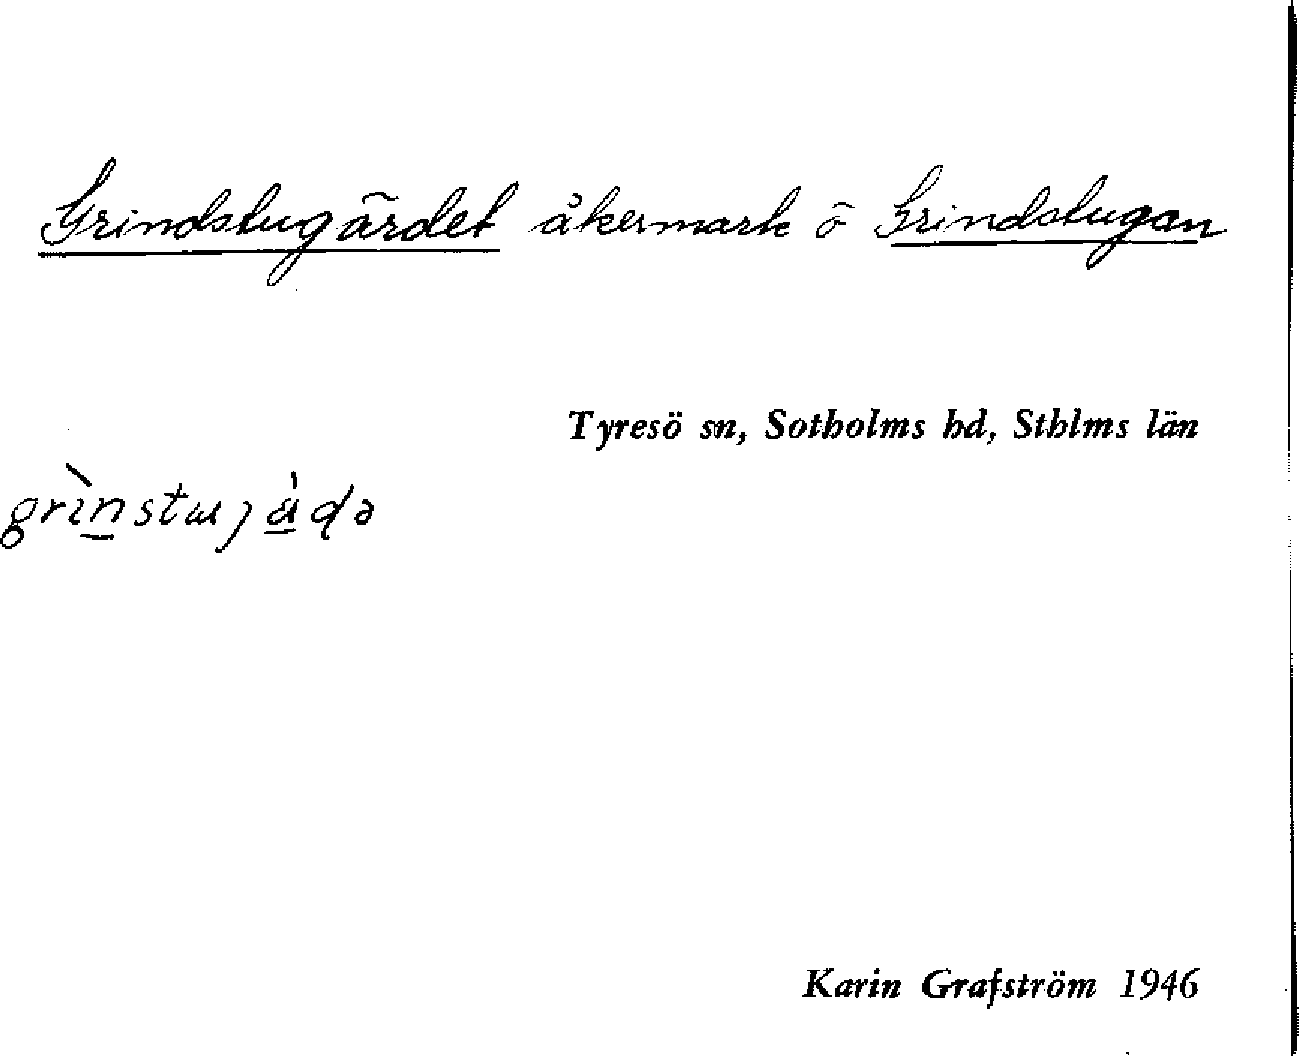 Grindstugärdet åkermark ö Grindstugan
Tyresö sn, Sotholms hd, Sthlms län
Karin Grafström 1946